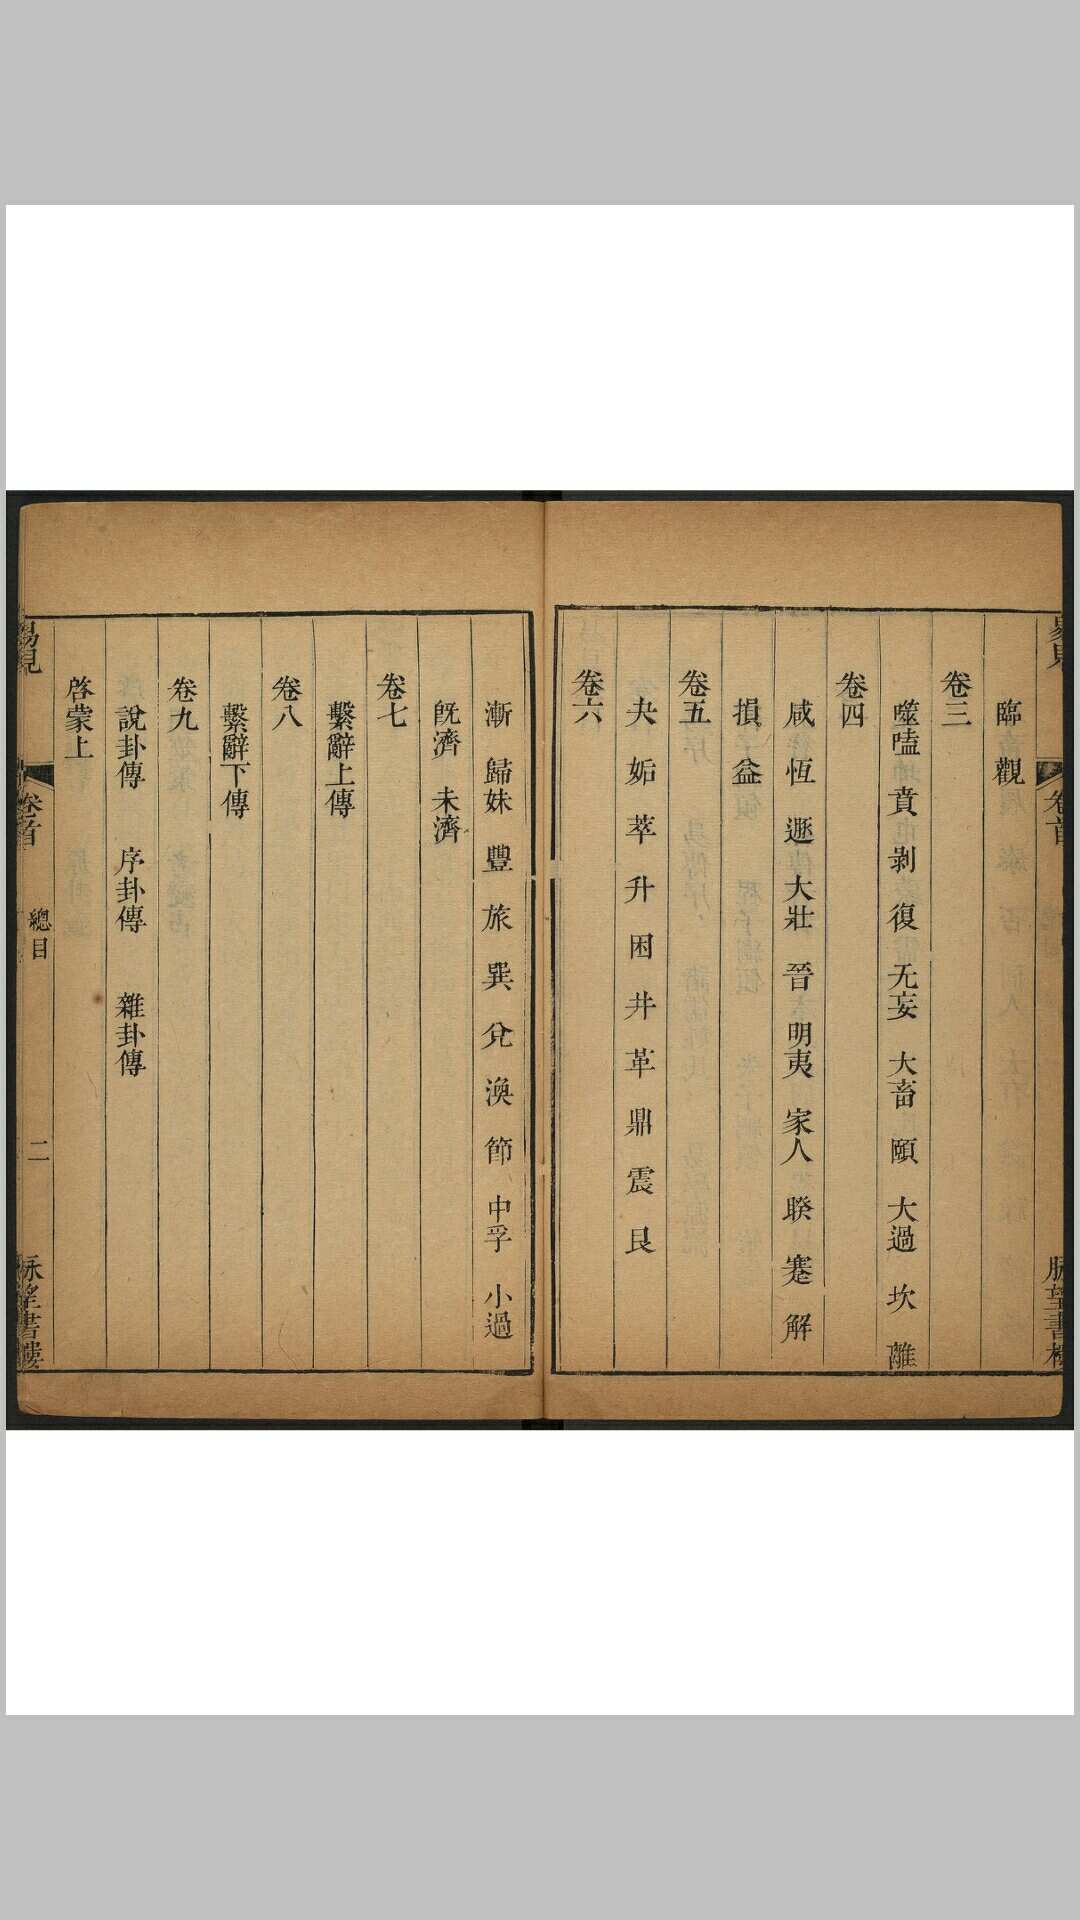 臨 觀
卷三
噬嗑 賁 剥 復 无妄 大畜 頤 大過 坎 離
卷四
咸 恆 遯 大壯 晉 明夷 家人 睽 蹇 解
損 益
卷五
夬 姤 萃 升 困 井 革 鼎 震 艮
卷六
漸 歸妹 豐 旅 巽 兌 渙 節 中孚 小過
旣濟 未濟
卷七
繫辭上傳
卷八
繫辭下傳
卷九
說卦傳 序卦傳 雜卦傳
啓蒙上
易見 卷首 總目 二 脉望書樓